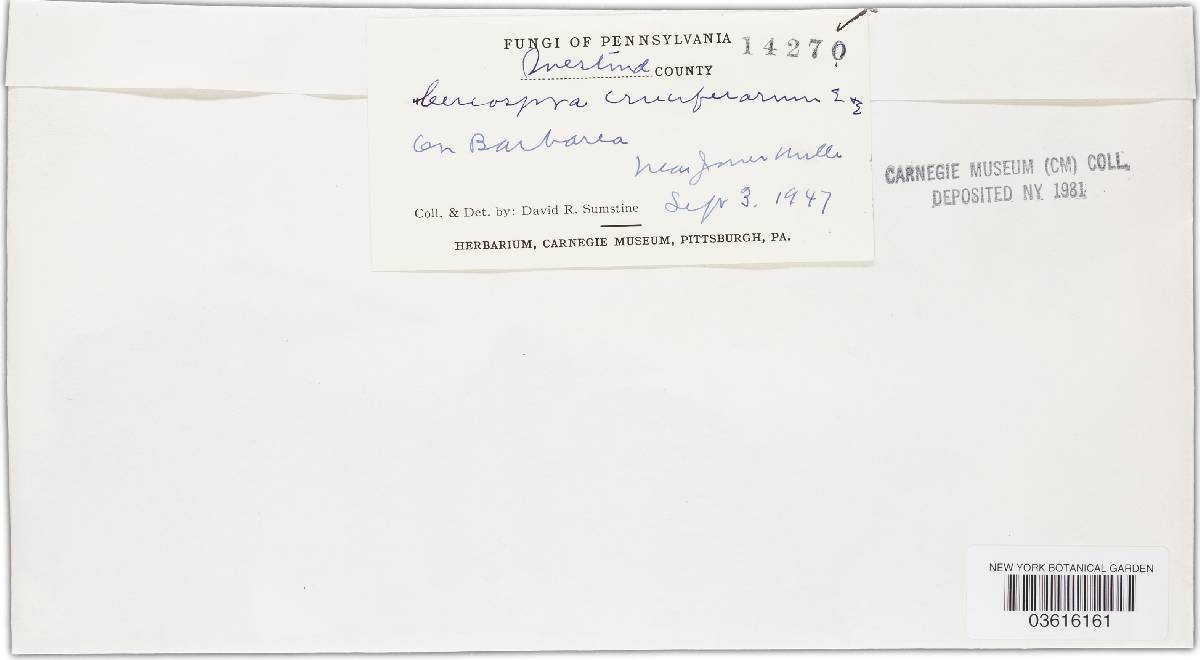 FUNGI OF PENNSYLVANIA 14270
COUNTY
Cercospora cruciferarum E & E
On Barbarea
Near Jones Mills
Sept 3. 1947
Coll. & Det. by: David R. Sumstine
HERBARIUM, CARNEGIE MUSEUM, PITTSBURGH, PA.
CARNEGIE MUSEUM (CM) COLL.
DEPOSITED NY 1981
NEW YORK BOTANICAL GARDEN
03616161